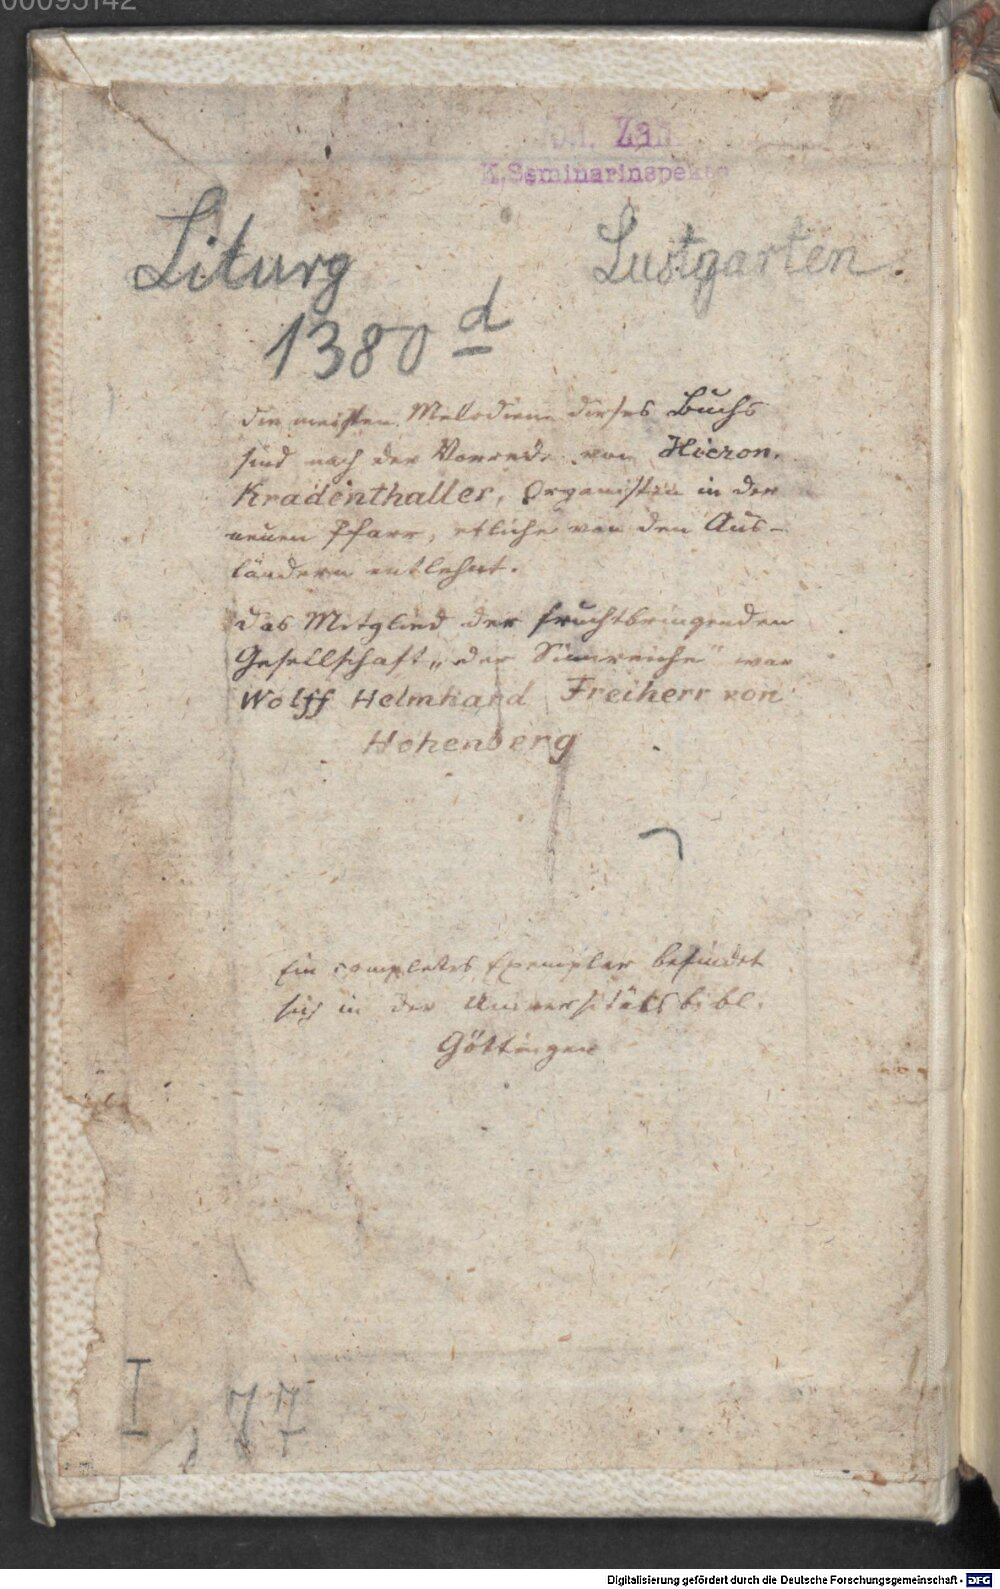 00095142
Zahn
K. Seminarinspektor
Liturg Lustgarten.
1380 d
Die meisten Melodien dieses Buchs
sind nach der Vorrede von Hieron.
Kradenthaller, Organisten in der
neuen Pfarr, etliche von den Aus-
ländern entlehnt.
Das Mitglied der fruchtbringenden
Gesellschaft „der Sinnreiche" war
Wolff Helmhard Freiherr von
Hohenberg
Ein completes Exemplar befindet
sich in der Universitätsbibl.
Göttingen
I, 77
Digitalisierung gefördert durch die Deutsche Forschungsgemeinschaft - DFG